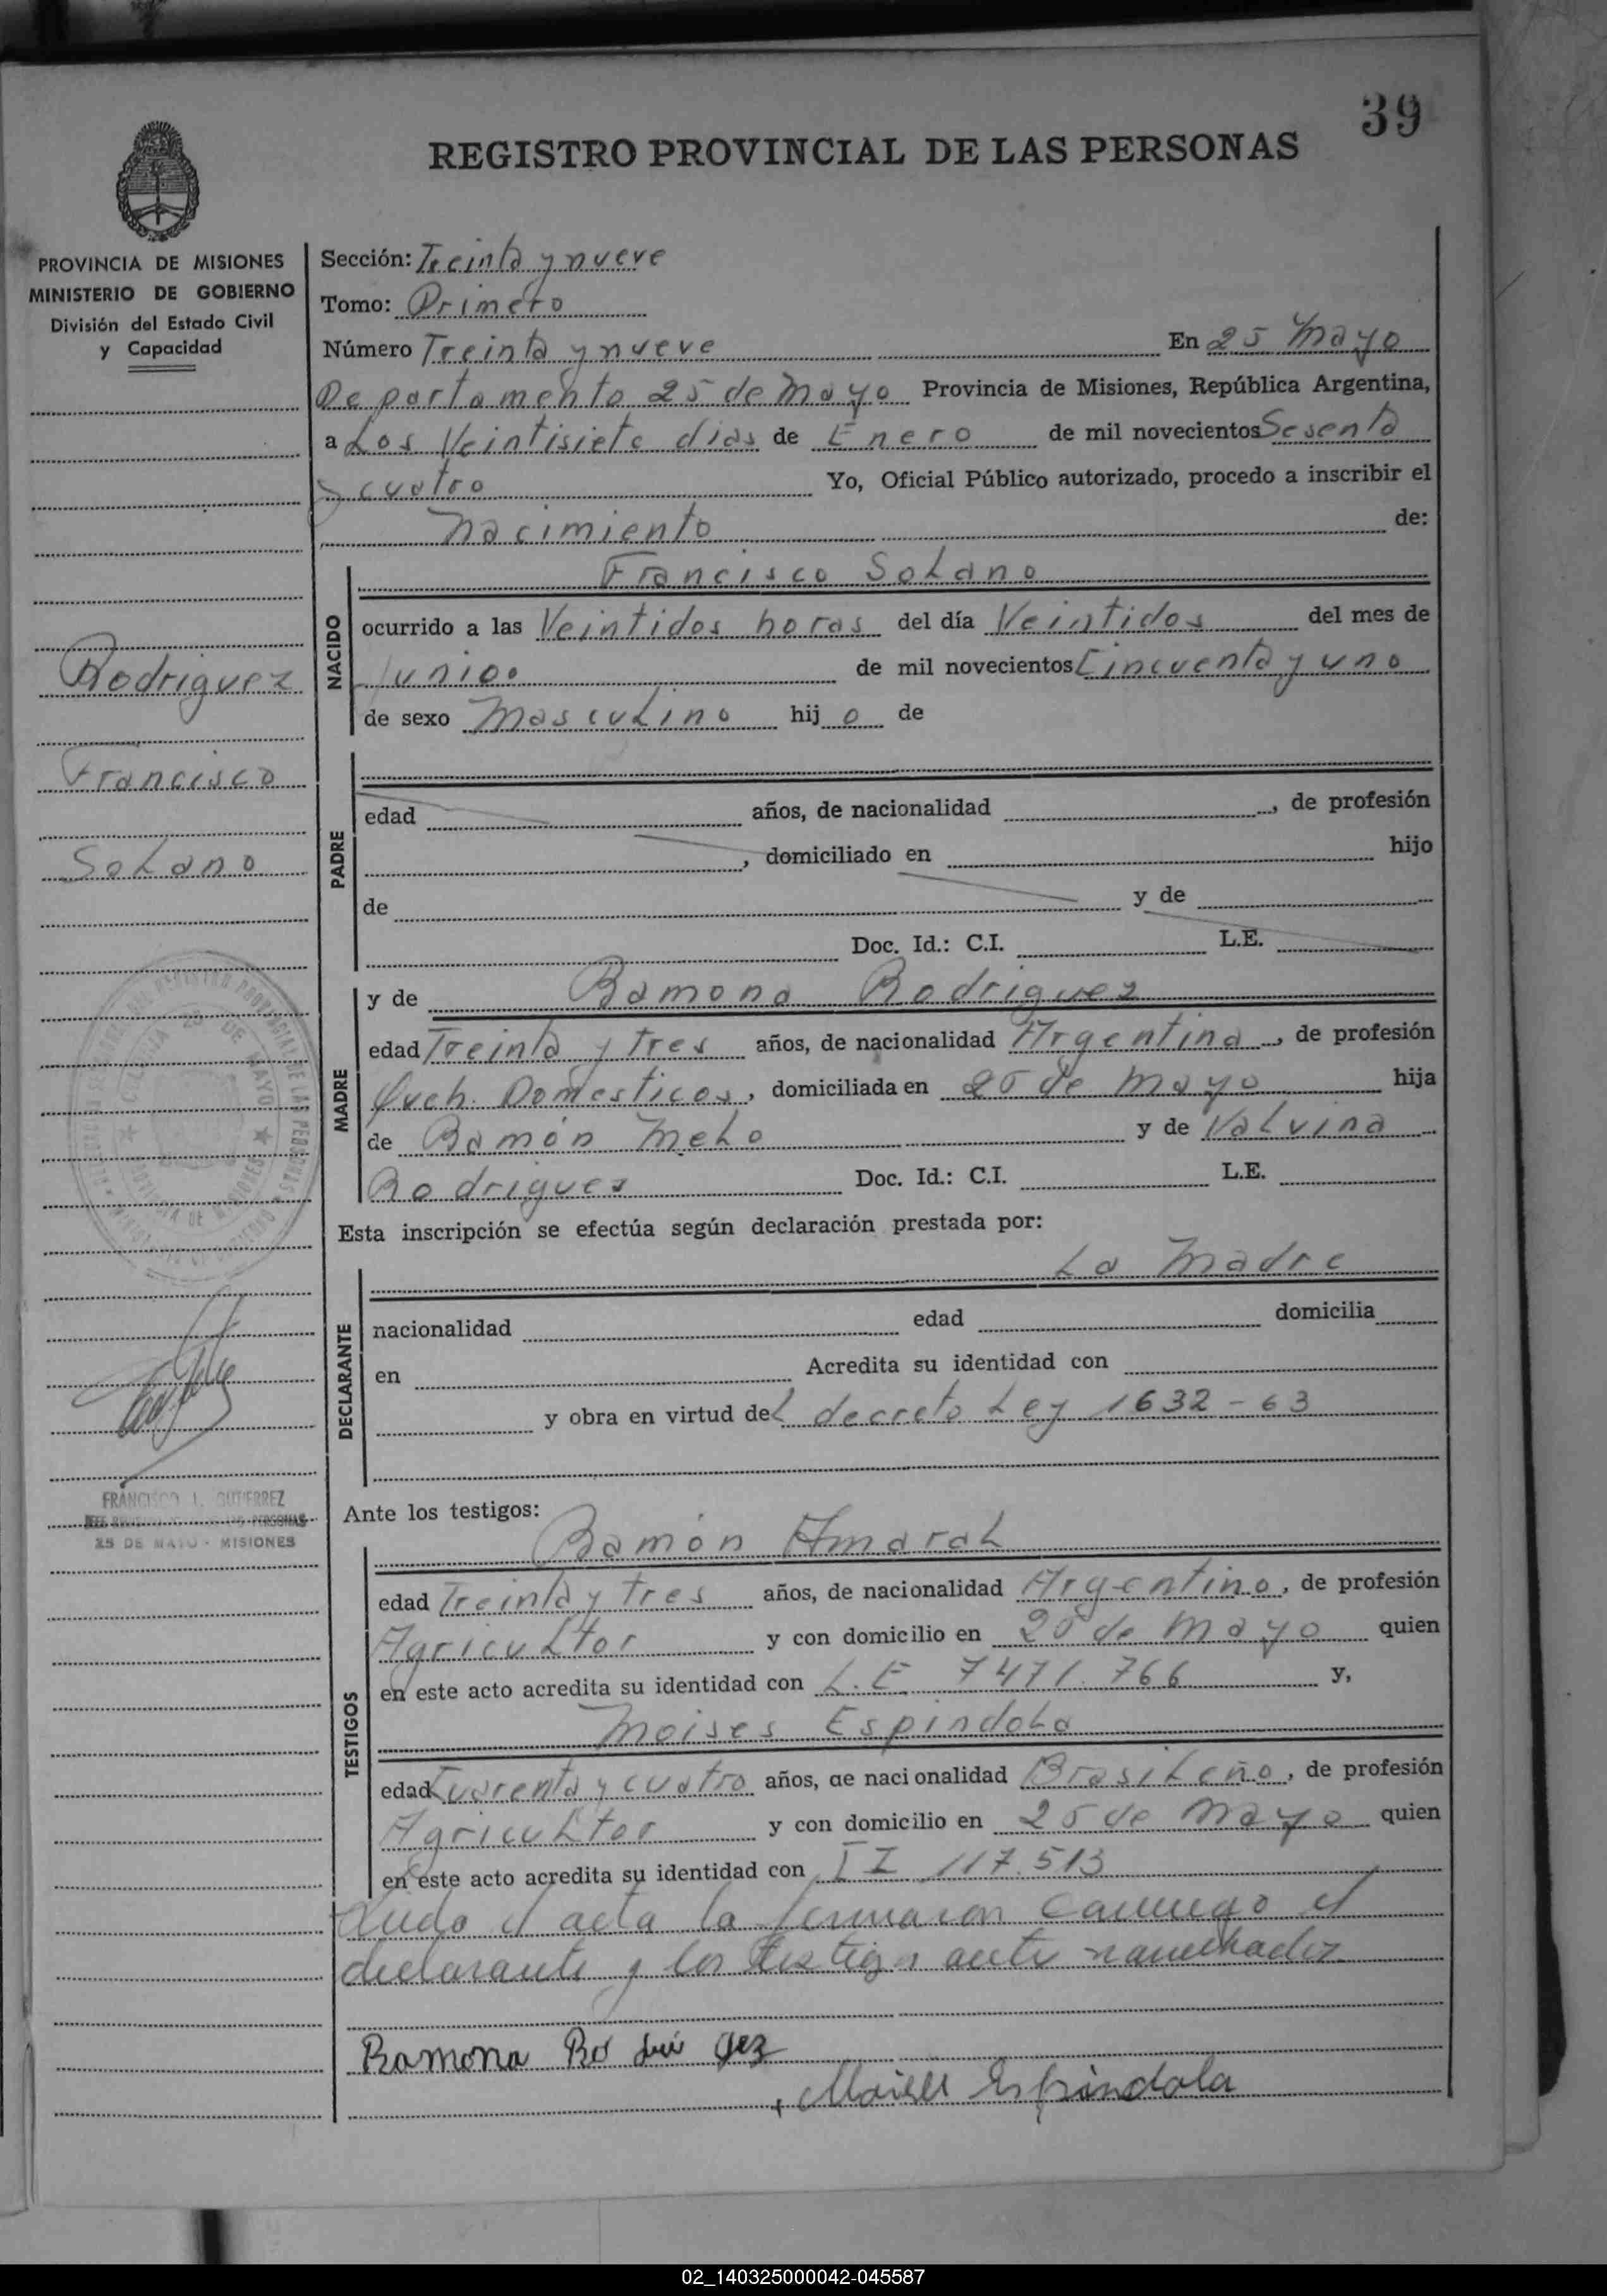 39
REGISTRO PROVINCIAL DE LAS PERSONAS
PROVINCIA DE MISIONES
MINISTERIO DE GOBIERNO
División del Estado Civil
y Capacidad
Rodriguez
Francisco
Solano
FRANCISCO J. GUTIERREZ
25 DE MAYO - MISIONES
Sección: Treinta y nueve
Tomo: Primero
Número Treinta y nueve En 25 Mayo
Departamento 25 de Mayo Provincia de Misiones, República Argentina,
a Los Veintisiete dias de Enero de mil novecientos Sesenta
y cuatro Yo, Oficial Público autorizado, procedo a inscribir el
Nacimiento de:
NACIDO
Francisco Solano
ocurrido a las Veintidos horas del día Veintidos del mes de
Junio de mil novecientos Cincuenta y uno
de sexo Masculino hijo de
PADRE
edad años, de nacionalidad , de profesión
, domiciliado en hijo
de y de
Doc. Id.: C.I. L.E.
MADRE
y de Ramona Rodriguez
edad Treinta y tres años, de nacionalidad Argentina, de profesión
Queh. Domesticos, domiciliada en 25 de Mayo hija
de Ramón Melo y de Valvina
Rodriguez Doc. Id.: C.I. L.E.
Esta inscripción se efectúa según declaración prestada por:
DECLARANTE
La Madre
nacionalidad edad domicilia
en Acredita su identidad con
y obra en virtud del decreto Ley 1632-63
Ante los testigos:
TESTIGOS
Ramón Amaral
edad Treinta y tres años, de nacionalidad Argentino, de profesión
Agricultor y con domicilio en 25 de Mayo quien
en este acto acredita su identidad con L.E. 7471.766 y,
Moises Espindola
edad Cuarenta y cuatro años, de nacionalidad Brasileño, de profesión
Agricultor y con domicilio en 25 de Mayo quien
en este acto acredita su identidad con II 117.513
acta la firmaron el
declarante y los
Ramona Ro dri gez
Moises Espindola
02_140325000042-045587